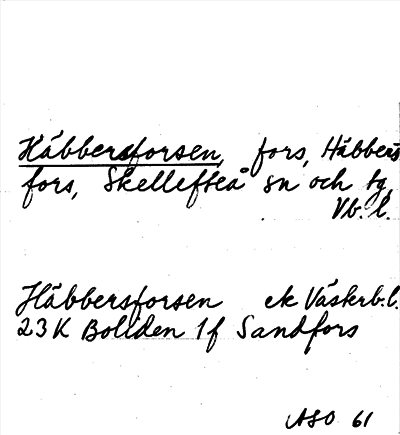 Häbbersforsen, fors, Häbbers-
fors, Skellefteå sn och tg,
Vb. l.
Häbbersforsen ek Västerb.l.
23K Boliden 1f Sandfors
ASO 61